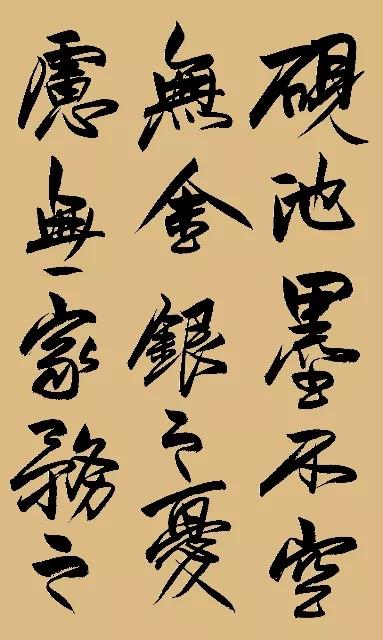 硯池墨不空
無金銀之憂
慮無家務之